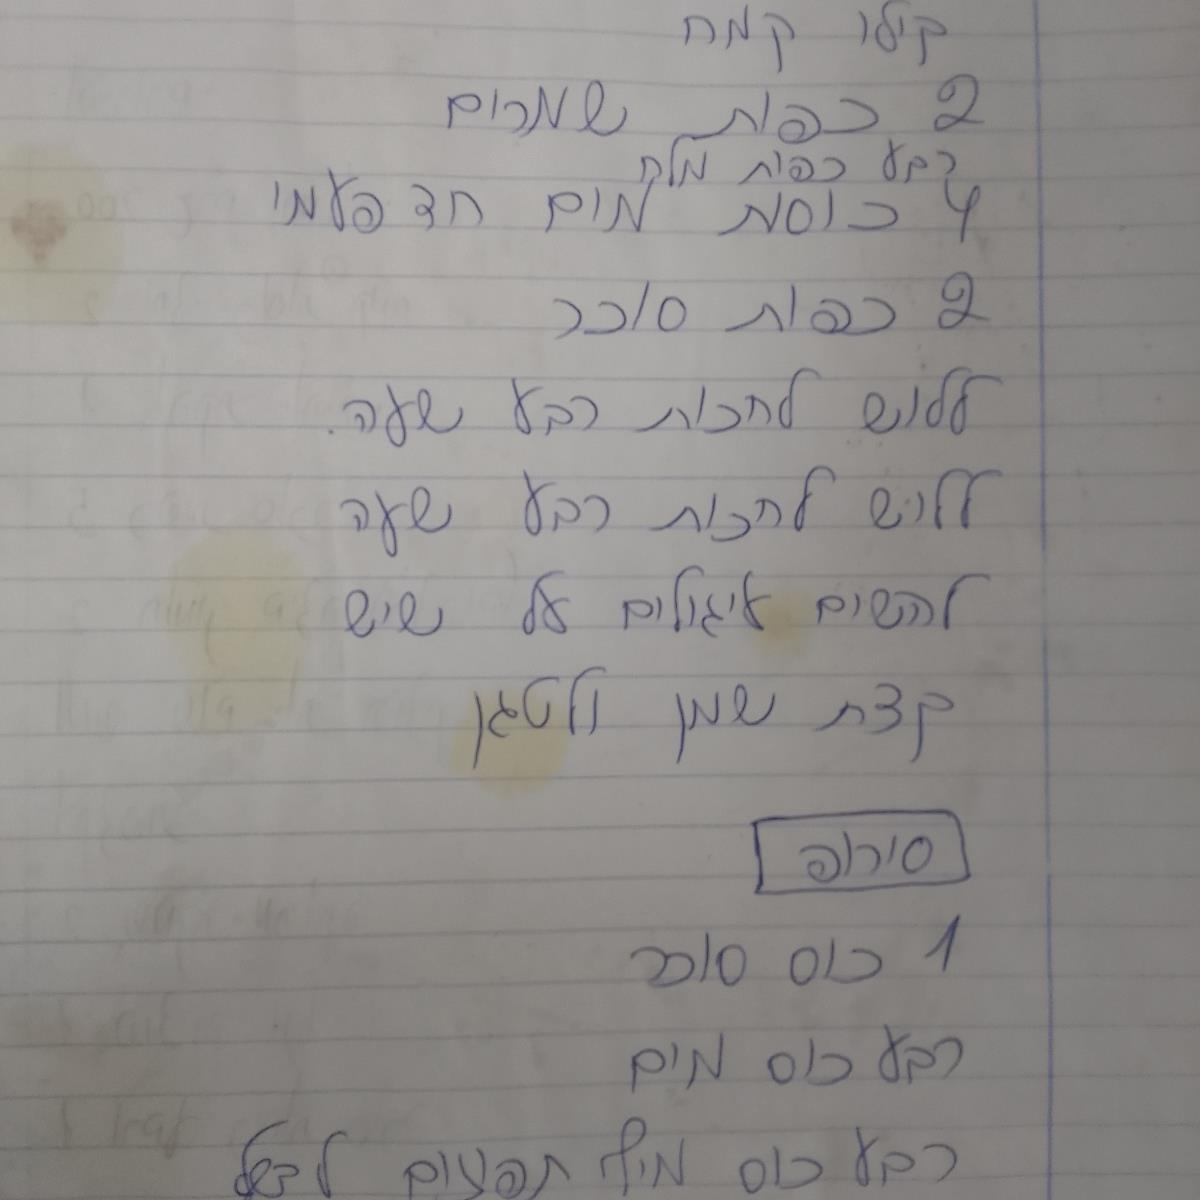 קילו קמח
2 כפות שמרים
רבע כפית מלח
4 כוסת מים חד פעמי
2 כפות סוכר
ללוש לחכות רבע שעה.
ללוש לחכות רבע שעה
להשים עיגולים על שיש
קצת שמן ולטגן
סירופ
1 כוס סוכר
רבע כוס מים
רבע כוס מיץ תפוזים לבשל